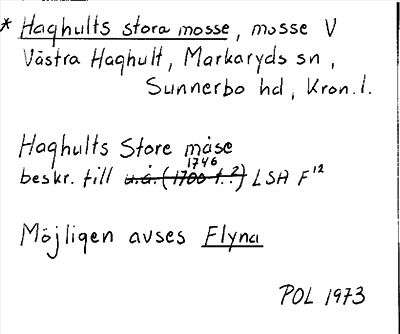 * Haghults stora mosse, mosse V
Västra Haghult, Markaryds sn,
Sunnerbo hd, Kron. l.
Haghults Store måse
1746
beskr. till u.å. (1700 t.?) LSA F12
Möjligen avses Flyna
POL 1973